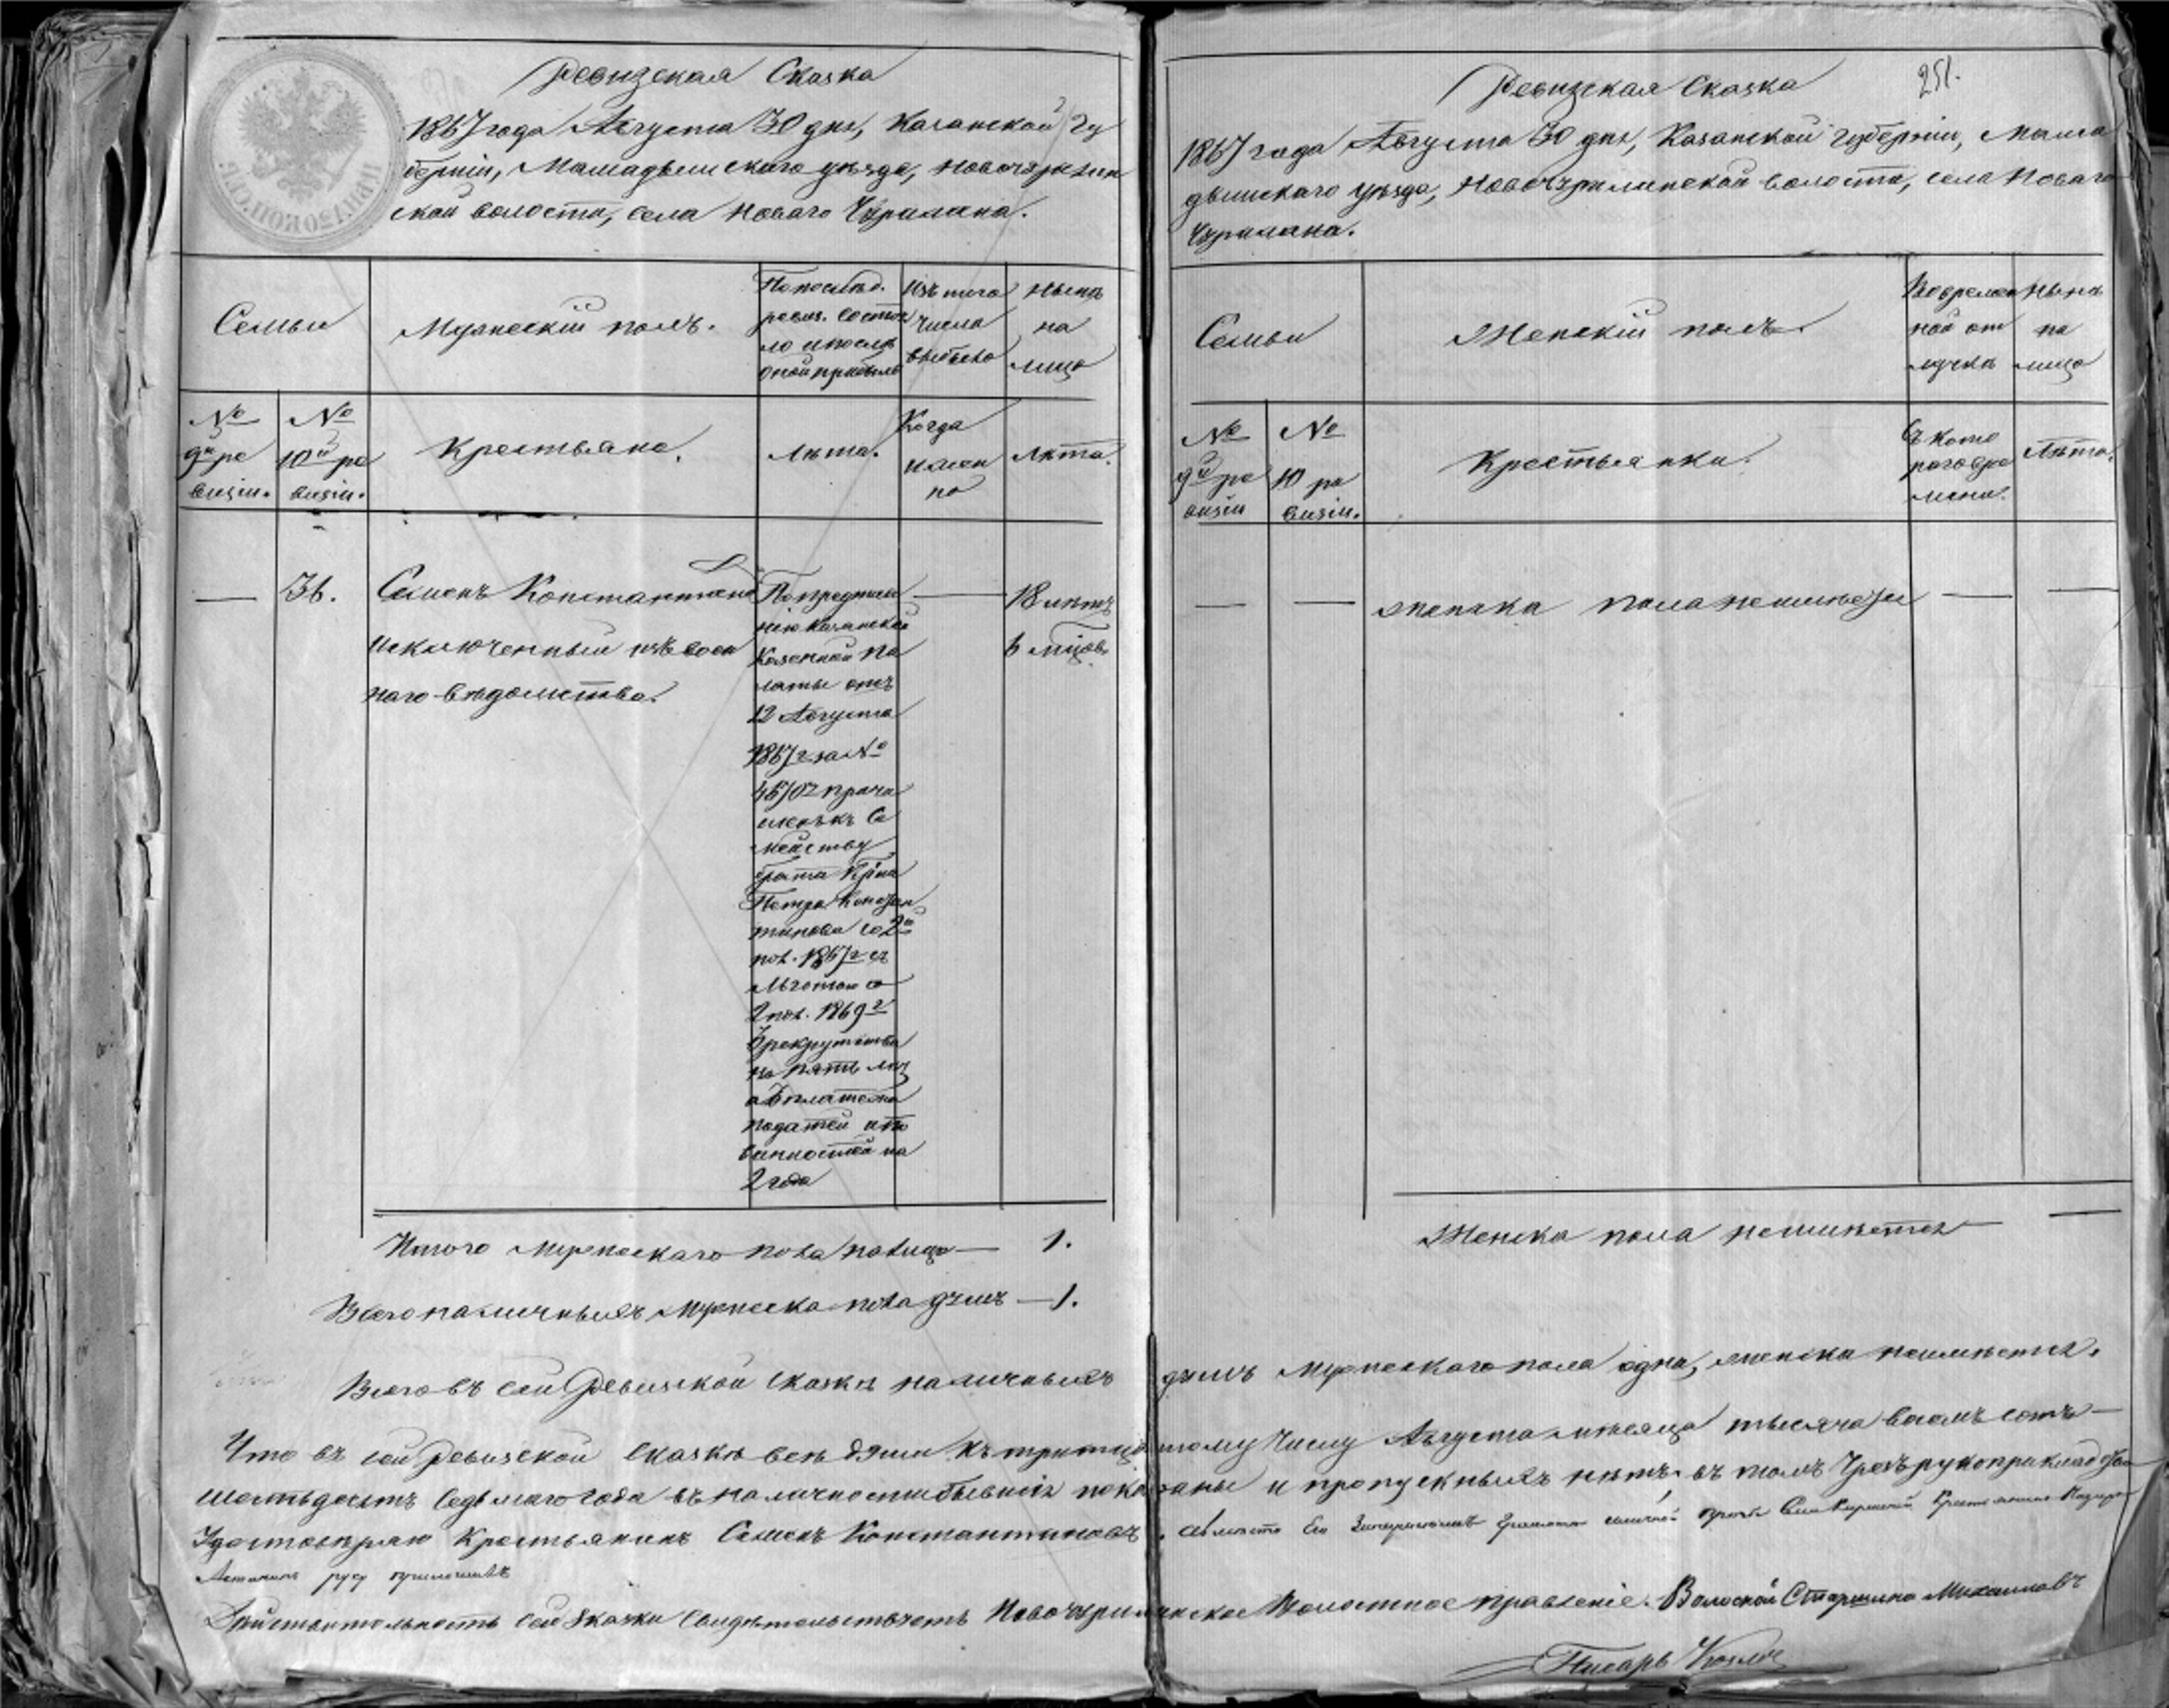 Ревизская Сказка
1867 года Августа 30 дня, Казанской Гу
берніи, Мамадышскаго уѣзда, Новочурилин
ской волости, села Новаго Чурилина.
Семьи
Мужескій полъ.
По послѣд.
ревиз. состоя
ло и послѣ
оной прибыло
Изъ того
числа
выбыло
Нынѣ
на
лицо
№
9й ре
визіи.
№
10й ре
визіи.
Крестьяне.
Лѣта.
Когда
имен
но
Лѣта.
36.
Семенъ Константинов
исключенный изъ воен
наго вѣдомства.
По предписа
нію Казанской
Казенной па
латы отъ
12 Августа
1867 г. за №
причи
сленъ къ Се
мейству
брата
Петра Констан
тинова со 2й
пол. 1867 г. съ
льготою со
2 пол. 1869 г
рекрутства
на пять лѣтъ
а платежа
податей и по
винностей на
2 года
18 лѣтъ
6 мѣцов.
Итого мужескаго пола на лицо — 1.
Всего наличныхъ мужеска пола душъ — 1.
Ревизская Сказка
251.
1867 года Августа 30 дня, Казанской губерніи, Мама
дышскаго уѣзда, Новочурилинской волости, села Новаго
Чурилина.
Семьи
Женскій полъ.
Во времен
ной от
лучкѣ
Нынѣ
на
лицо
№
9й ре
визіи
№
10 ре
визіи.
Крестьянки.
Съ кото
раго вре
мени.
Лѣта.
женска пола неимѣется
Женска пола неимѣется
Всего въ сей Ревизской Сказкѣ наличныхъ душъ мужескаго пола одна, женска неимѣется.
Что въ сей Ревизской Сказкѣ всѣ души къ тридцатому числу Августа мѣсяца тысяча восемь сотъ
шестьдесятъ седьмаго года въ наличности бывшія показаны и пропускныхъ нѣтъ въ томъ чрезъ рукоприкладство
Удостовѣряю Крестьянинъ Семенъ Константиновъ, а вмѣсто его
руку приложилъ
Дѣйствительность сей Сказки свидѣтельствуетъ Новочурилинское Волостное правленіе. Волостной Старшина Михаиловъ
Писарь